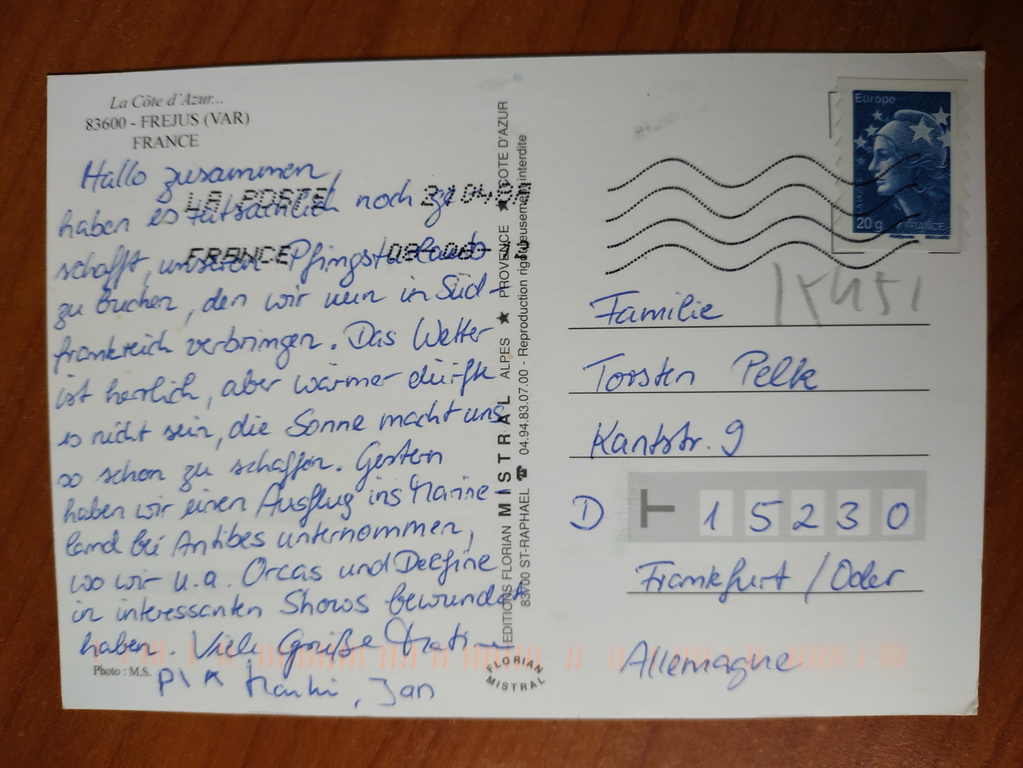 La Côte d'Azur...
83600 - FREJUS (VAR)
FRANCE
Hallo zusammen,
haben es tatsächlich noch ge-
schafft, unseren Pfingsturlaub
zu buchen, den wir nun in Süd-
frankreich verbringen. Das Wetter
ist herrlich, aber wärmer dürfte
es nicht sein, die Sonne macht uns
so schon zu schaffen. Gestern
haben wir einen Ausflug ins Marine
land bei Antibes unternommen,
wo wir u.a. Orcas und Delfine
in interessanten Shows bewundert
haben. Viele Grüße
Jan
Photo : M.S.
LA POSTE
FRANCE
EDITIONS FLORIAN MISTRAL ALPES ★ PROVENCE ★ COTE D'AZUR
83700 ST-RAPHAEL ☎ 04.94.83.07.00 - Reproduction rigoureusement interdite
FLORIAN
MISTRAL
Europe
20g
FRANCE
15451
Familie
Torsten Pelk
Kantstr. 9
D T 15230
Frankfurt / Oder
Allemagne